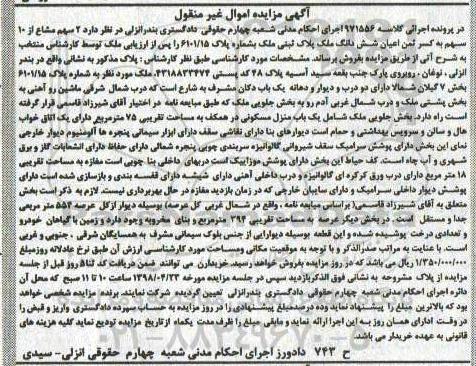 آگهی مزایده اموال غیر منقول
در پرونده اجرائی کلاسه ۹۷۱۵۵۶ اجرای احکام مدنی شعبه چهارم حقوقی دادگستری بندرانزلی در نظر دارد ۲ سهم مشاع از ۱۰
سهم به کسر ثمن اعیان شش دانگ ملک پلاک ثبتی ملک بشماره پلاک ۶۱۰۱/۱۵ را پس از ارزیابی ملک توسط کارشناس منتخب
به شرح آتی از طریق مزایده بفروش برساند. مشخصات مورد کارشناسی طبق نظر کارشناس: پلاک مذکور به نشانی واقع در بندر
انزلی، نوغان، روبروی پارک جنب بقعه سید آسیه پلاک ۴۸ کد پستی ۴۳۱۸۸۳۳۴۷۴ ملک مورد نظر به شماره پلاک ۶۱۰۱/۱۵
بخش ۷ گیلان شمالا دارای دو درب و دیوار و دهانه یک باب دکان مشرف به شارع است که درب شمال شرقی ماشین رو آهنی به
بخش پشتی ملک و درب شمال غربی آدم رو به بخش جلویی ملک که طبق مبایعه نامه در اختیار آقای شیرزاد قاسمی قرار گرفته
است راه دارد، بخش جلویی ملک شامل یک باب منزل مسکونی در همکف به مساحت تقریبی ۷۵ مترمربع دارای یک اتاق خواب
هال و سالن و سرویس بهداشتی و حمام است دیوارهای بنا دارای نقاشی سقف دارای ابزار سیمانی پنجره ها آلومینیوم دیوار خارجی
نمای این بخش دارای پوشش سرامیک سقف شیروانی گالوانیزه سربندی چوبی پنجره شمالی دارای حفاظ دارای انشعابات گاز و برق
شهری و آب چاه است. کف حیاط این بخش دارای پوشش موزاییک است دربهای داخلی بنا چوبی است مغازه به مساحت تقریبی
۱۸ متر مربع دارای درب ورق کرکره ای گالوانیزه و درب داخلی آهنی دارای شیشه دارای قفسه بندی و بازسازی شده است دارای
پوشش دیوار داخلی سرامیک و دارای سایبان خارجی که در زمان بازدید مغازه در حال بهره‌برداری نیست. لازم به ذکر است بخش
متعلق به آقای شیرزاد قاسمی (براساس مبایعه نامه، واقع در شمال غربی کل عرصه) بوسیله دیوار ازکل عرصه ۵۵۴ متر مربعی
جدا و مستقل است. در بخش دیگر عرصه به مساحت تقریبی ۳۹۴ مترمربع و بنای مخروبه وجود دارد و زمین با گیاهان خودرو
و تعدادی درخت پوشیده شده و این قطعه بوسیله دیوارایی از جنس بلوک سیمانی مشرف به همسایگان شرقی، جنوبی و غربی
است. با عنایت به مراتب صدرالذکر و با توجه به موقعیت مکانی ومساحت مورد کارشناسی ارزش آن طبق نرخ عادلانه روزمبلغ
۱/۳۵۰/۰۰۰/۰۰۰ ریال می باشد که در روز مزایده بفروش خواهد رسید. خریداران می توانند ضمن دریافت کد ثنا۵ روز قبل از جلسه
مزایده از پلاک مشروحه به نشانی فوق الذکربازدید سپس در جلسه مزایده مورخه ۱۳۹۸/۰۴/۳۳ ساعت ۱۰ تا ۱۱ صبح که محل آن
دائره اجرای احکام مدنی شعبه چهارم حقوقی دادگستری بندرانزلی تعیین گردیده شرکت نمایند. برنده مزایده شخصی خواهد
بود که بالاترین مبلغ را پیشنهاد نماید وده درصدمبلغ پیشنهادی را در روز مزایده به حساب سپرده دادگستری واریز و قبض را
در وقت اداری همان روز به این اجرا ارائه نمایند و مابقی مبلغ را ظرف مدت یکماه از تاریخ مزایده تودیع نماید کلیه هزینه های
قانونی به عهده خریدار می باشد.
ح ۷۴۳ دادورز اجرای احکام مدنی شعبه چهارم حقوقی انزلی- سیدی
۰۲۱-۸۸۳۴۹۶۷۰-۵